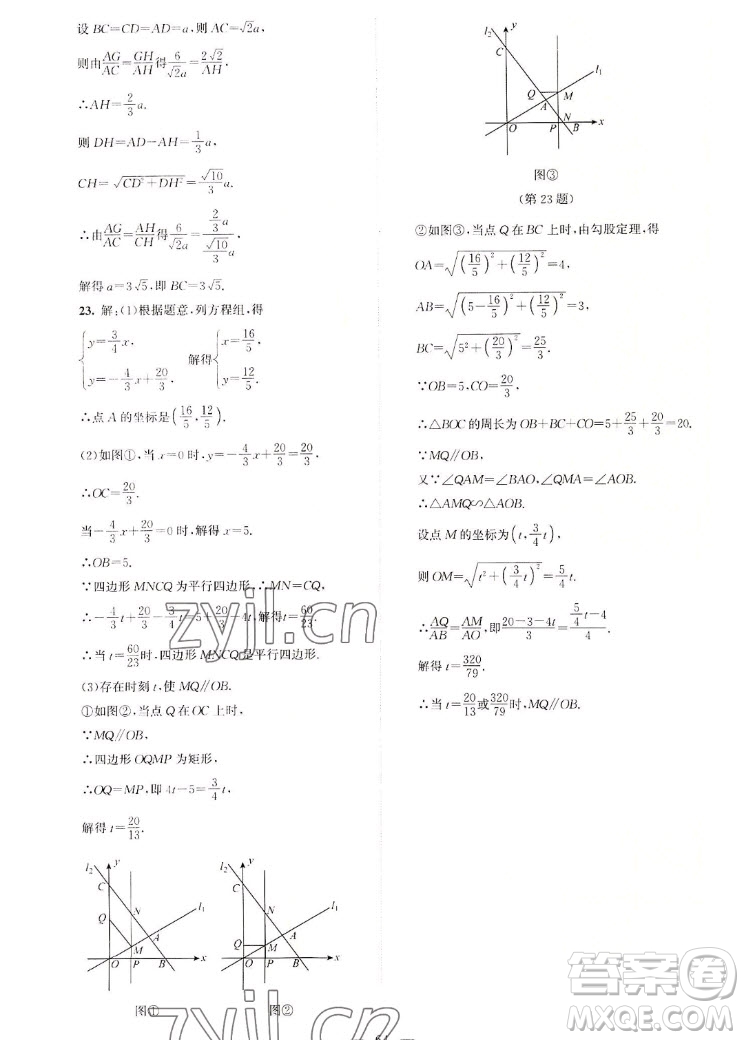 设 BC=CD=AD=a，则 AC=√2a，
则由AG/AC=GH/AH得6/(√2a)=2√2/AH.
∴AH=2/3a.
则 DH=AD−AH=1/3a,
CH=√(CD²+DH²)=√10/3a.
∴由AG/AC=AH/CH得6/(√2a)=(2/3a)/(√10/3a).
解得 a=3√5，即 BC=3√5.
23. 解：(1)根据题意，列方程组，得
{y=3/4x, y=−4/3x+20/3. 解得{x=16/5, y=12/5.
∴点 A 的坐标是(16/5,12/5).
(2)如图①，当 x=0 时，y=−4/3x+20/3=20/3.
∴OC=20/3.
当−4/3x+20/3=0 时，解得 x=5.
∴OB=5.
∵四边形 MNCQ 为平行四边形，∴MN=CQ,
∴−4/3t+20/3−3/4t=5+20/3−4t，解得 t=60/23.
∴当 t=60/23时，四边形 MNCQ 是平行四边形.
(3)存在时刻 t，使 MQ∥OB.
①如图②，当点 Q 在 OC 上时，
∵MQ∥OB,
∴四边形 OQMP 为矩形，
∴OQ=MP，即 4t−5=3/4t,
解得 t=20/13.
l₂ y C Q N A l₁ M O P B x
图①
l₂ y C N A l₁ Q M O P B x
图②
l₂ y C l₁ Q M A N O P B x
图③
(第 23 题)
②如图③，当点 Q 在 BC 上时，由勾股定理，得
OA=√((16/5)²+(12/5)²)=4,
AB=√((5−16/5)²+(12/5)²)=3,
BC=√(5²+(20/3)²)=25/3.
∵OB=5,CO=20/3,
∴△BOC 的周长为 OB+BC+CO=5+25/3+20/3=20.
∵MQ∥OB,
又∵∠QAM=∠BAO,∠QMA=∠AOB.
∴△AMQ∽△AOB.
设点 M 的坐标为(t,3/4t),
则 OM=√(t²+(3/4t)²)=5/4t,
∴AQ/AB=AM/AO，即(20−3−4t)/3=(5/4t−4)/4.
解得 t=320/79.
∴当 t=20/13或320/79时，MQ∥OB.
zyjl.cn
zyjl.cn
答案卷
zyjl.cn